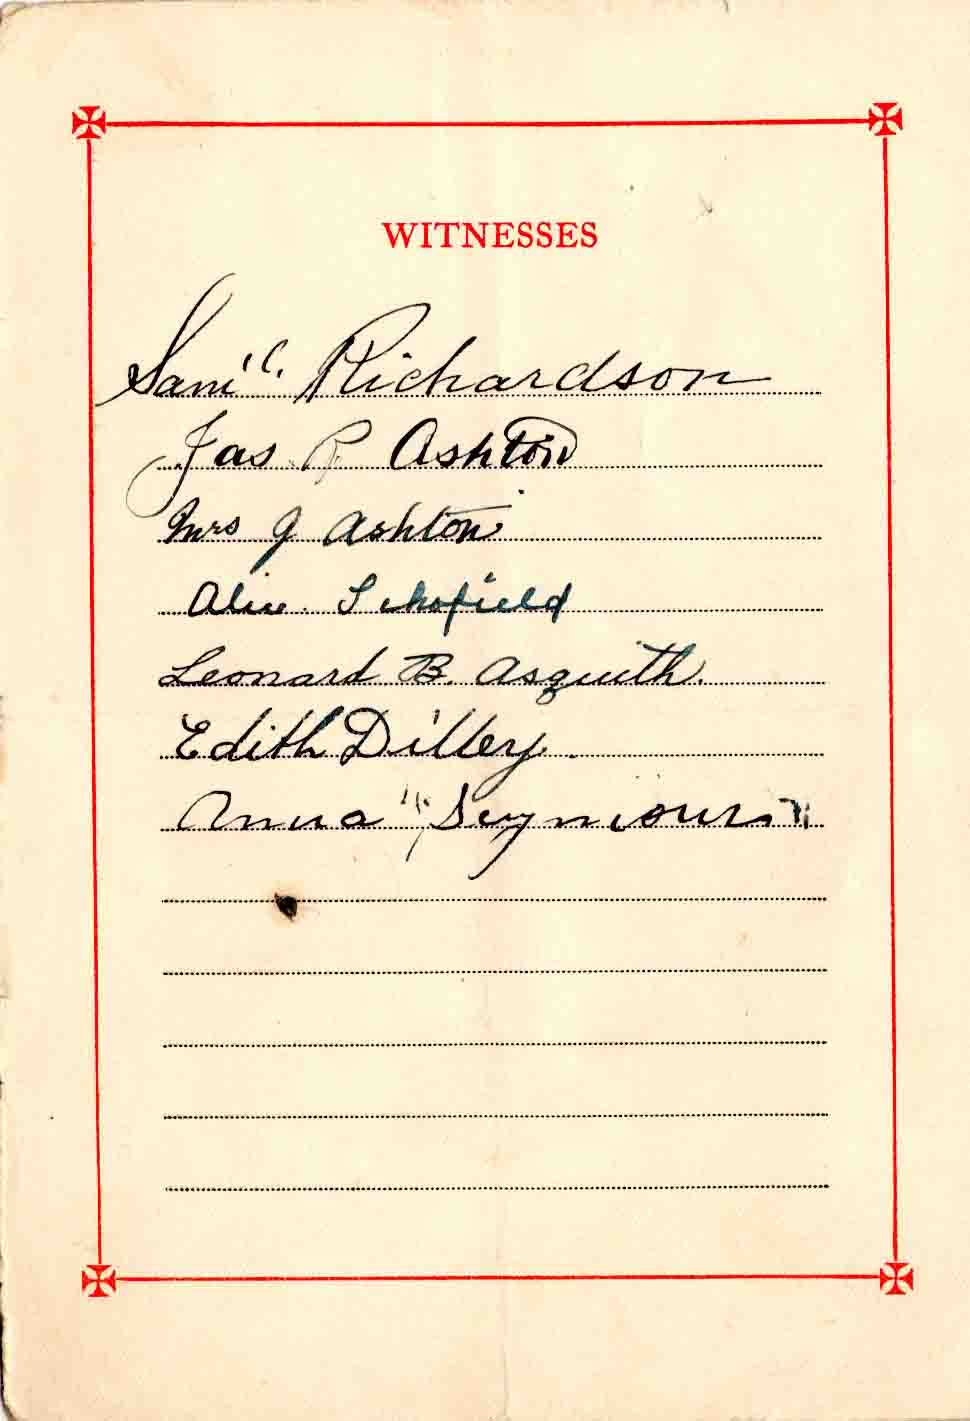 WITNESSES
Sam'l. Richardson
Jas R Ashton
Mrs J Ashton
Alice Schofield
Leonard B. Asquith.
Edith Dilley.
Anna Seymour